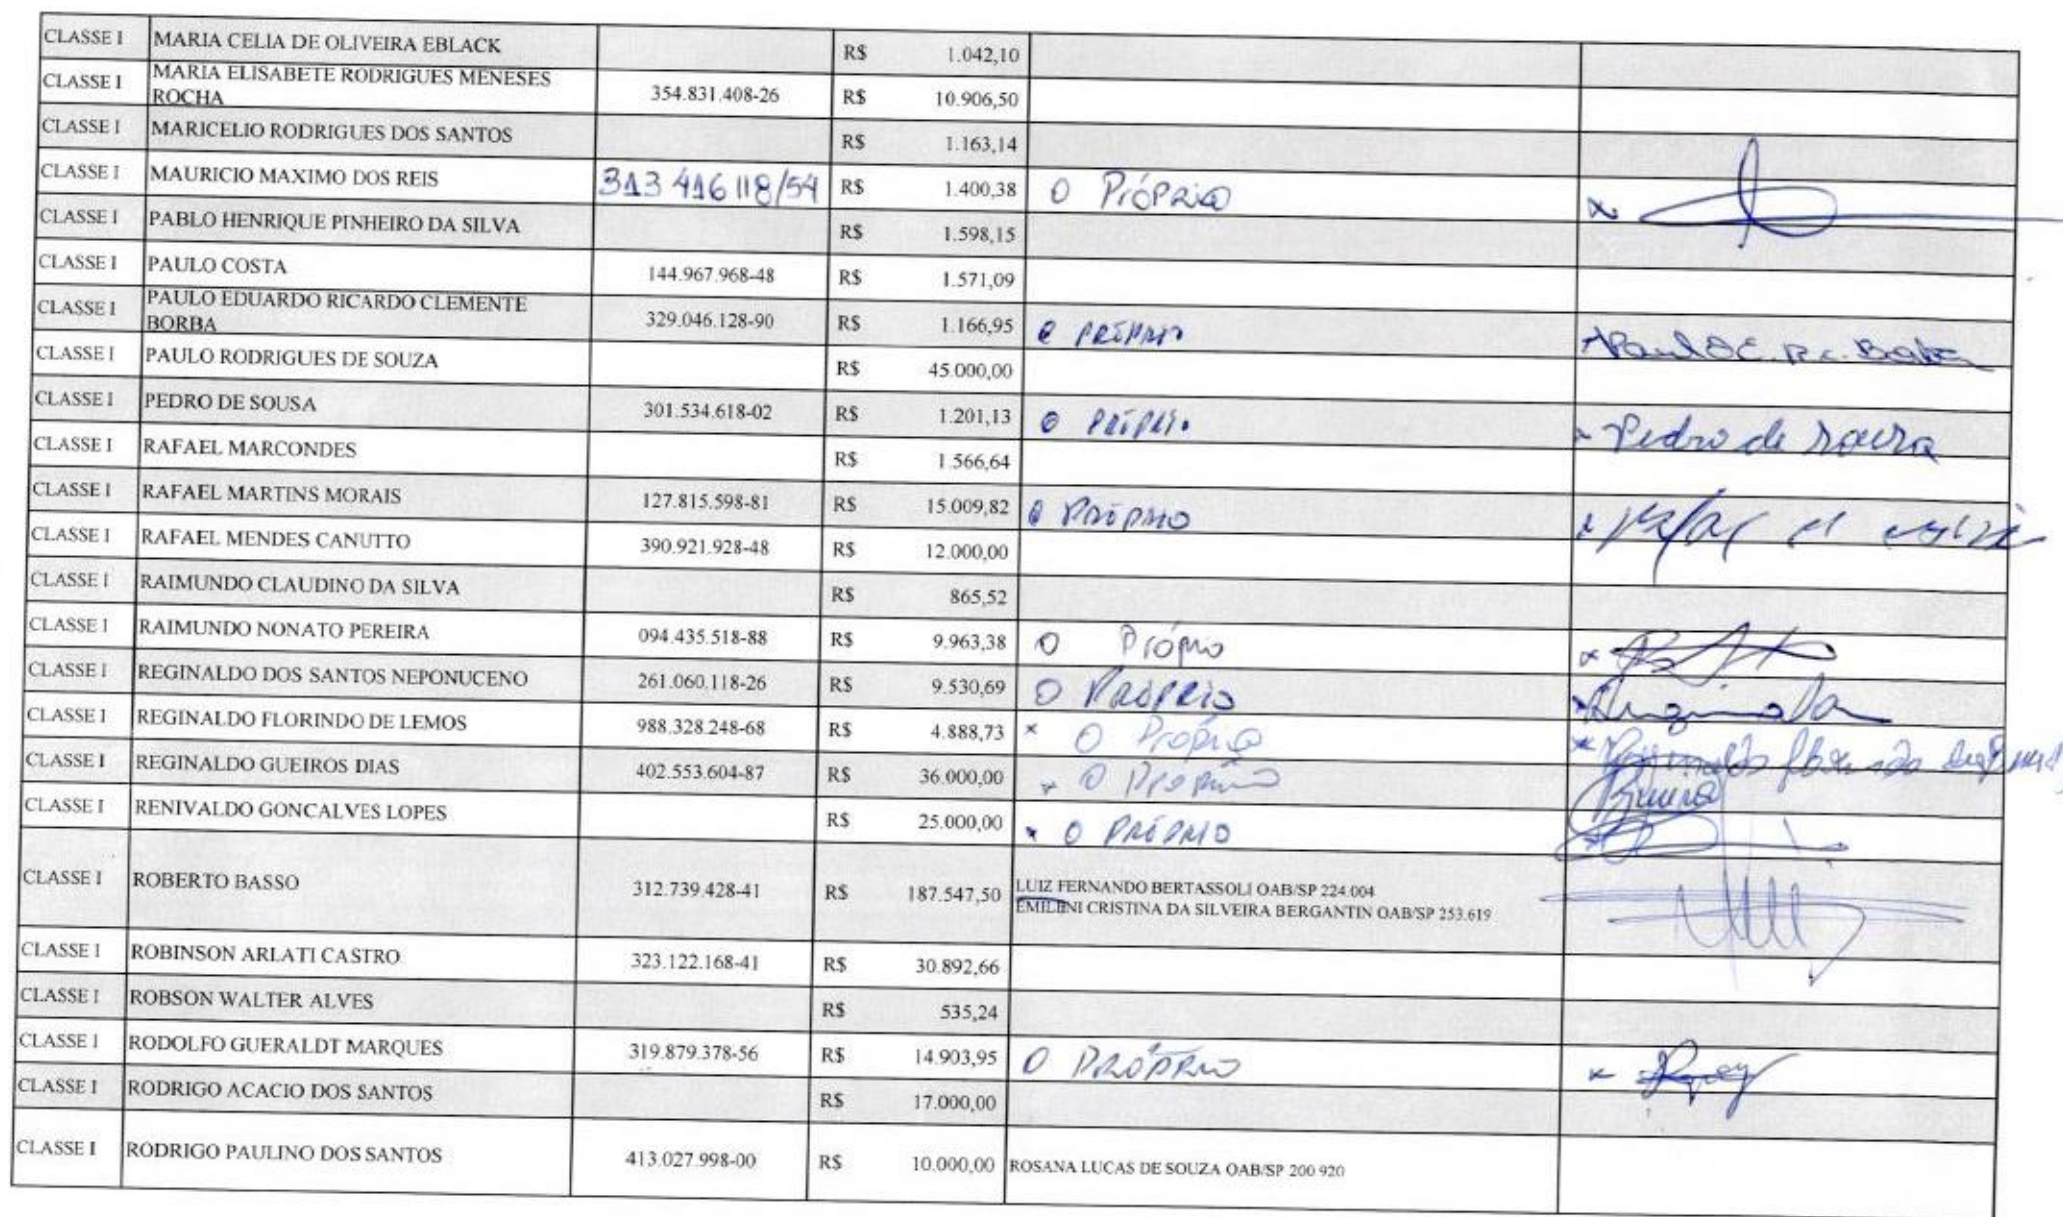 CLASSE I MARIA CELIA DE OLIVEIRA EBLACK R$ 1.042,10
CLASSE I MARIA ELISABETE RODRIGUES MENESES
ROCHA 354.831.408-26 R$ 10.906,50
CLASSE I MARICELIO RODRIGUES DOS SANTOS R$ 1.163,14
CLASSE I MAURICIO MAXIMO DOS REIS 313 416 118/54 R$ 1.400,38 O PróPRiO x
CLASSE I PABLO HENRIQUE PINHEIRO DA SILVA R$ 1.598,15
CLASSE I PAULO COSTA 144.967.968-48 R$ 1.571,09
CLASSE I PAULO EDUARDO RICARDO CLEMENTE
BORBA 329.046.128-90 R$ 1.166,95 O PRÓPRIO
CLASSE I PAULO RODRIGUES DE SOUZA R$ 45.000,00
CLASSE I PEDRO DE SOUSA 301.534.618-02 R$ 1.201,13 O PRÓPRIO x Pedro de Souza
CLASSE I RAFAEL MARCONDES R$ 1.566,64
CLASSE I RAFAEL MARTINS MORAIS 127.815.598-81 R$ 15.009,82 O PRÓPRIO
CLASSE I RAFAEL MENDES CANUTTO 390.921.928-48 R$ 12.000,00
CLASSE I RAIMUNDO CLAUDINO DA SILVA R$ 865,52
CLASSE I RAIMUNDO NONATO PEREIRA 094.435.518-88 R$ 9.963,38 O Próprio x
CLASSE I REGINALDO DOS SANTOS NEPONUCENO 261.060.118-26 R$ 9.530,69 O PRÓPRIO
CLASSE I REGINALDO FLORINDO DE LEMOS 988.328.248-68 R$ 4.888,73 x O Próprio x
CLASSE I REGINALDO GUEIROS DIAS 402.553.604-87 R$ 36.000,00 x O Próprio
CLASSE I RENIVALDO GONCALVES LOPES R$ 25.000,00 x O PRÓPRIO
CLASSE I ROBERTO BASSO 312.739.428-41 R$ 187.547,50 LUIZ FERNANDO BERTASSOLI OAB/SP 224 004
EMILENI CRISTINA DA SILVEIRA BERGANTIN OAB/SP 253.619
CLASSE I ROBINSON ARLATI CASTRO 323.122.168-41 R$ 30.892,66
CLASSE I ROBSON WALTER ALVES R$ 535,24
CLASSE I RODOLFO GUERALDT MARQUES 319.879.378-56 R$ 14.903,95 O PRÓPRIO x
CLASSE I RODRIGO ACACIO DOS SANTOS R$ 17.000,00
CLASSE I RODRIGO PAULINO DOS SANTOS 413.027.998-00 R$ 10.000,00 ROSANA LUCAS DE SOUZA OAB/SP 200 920